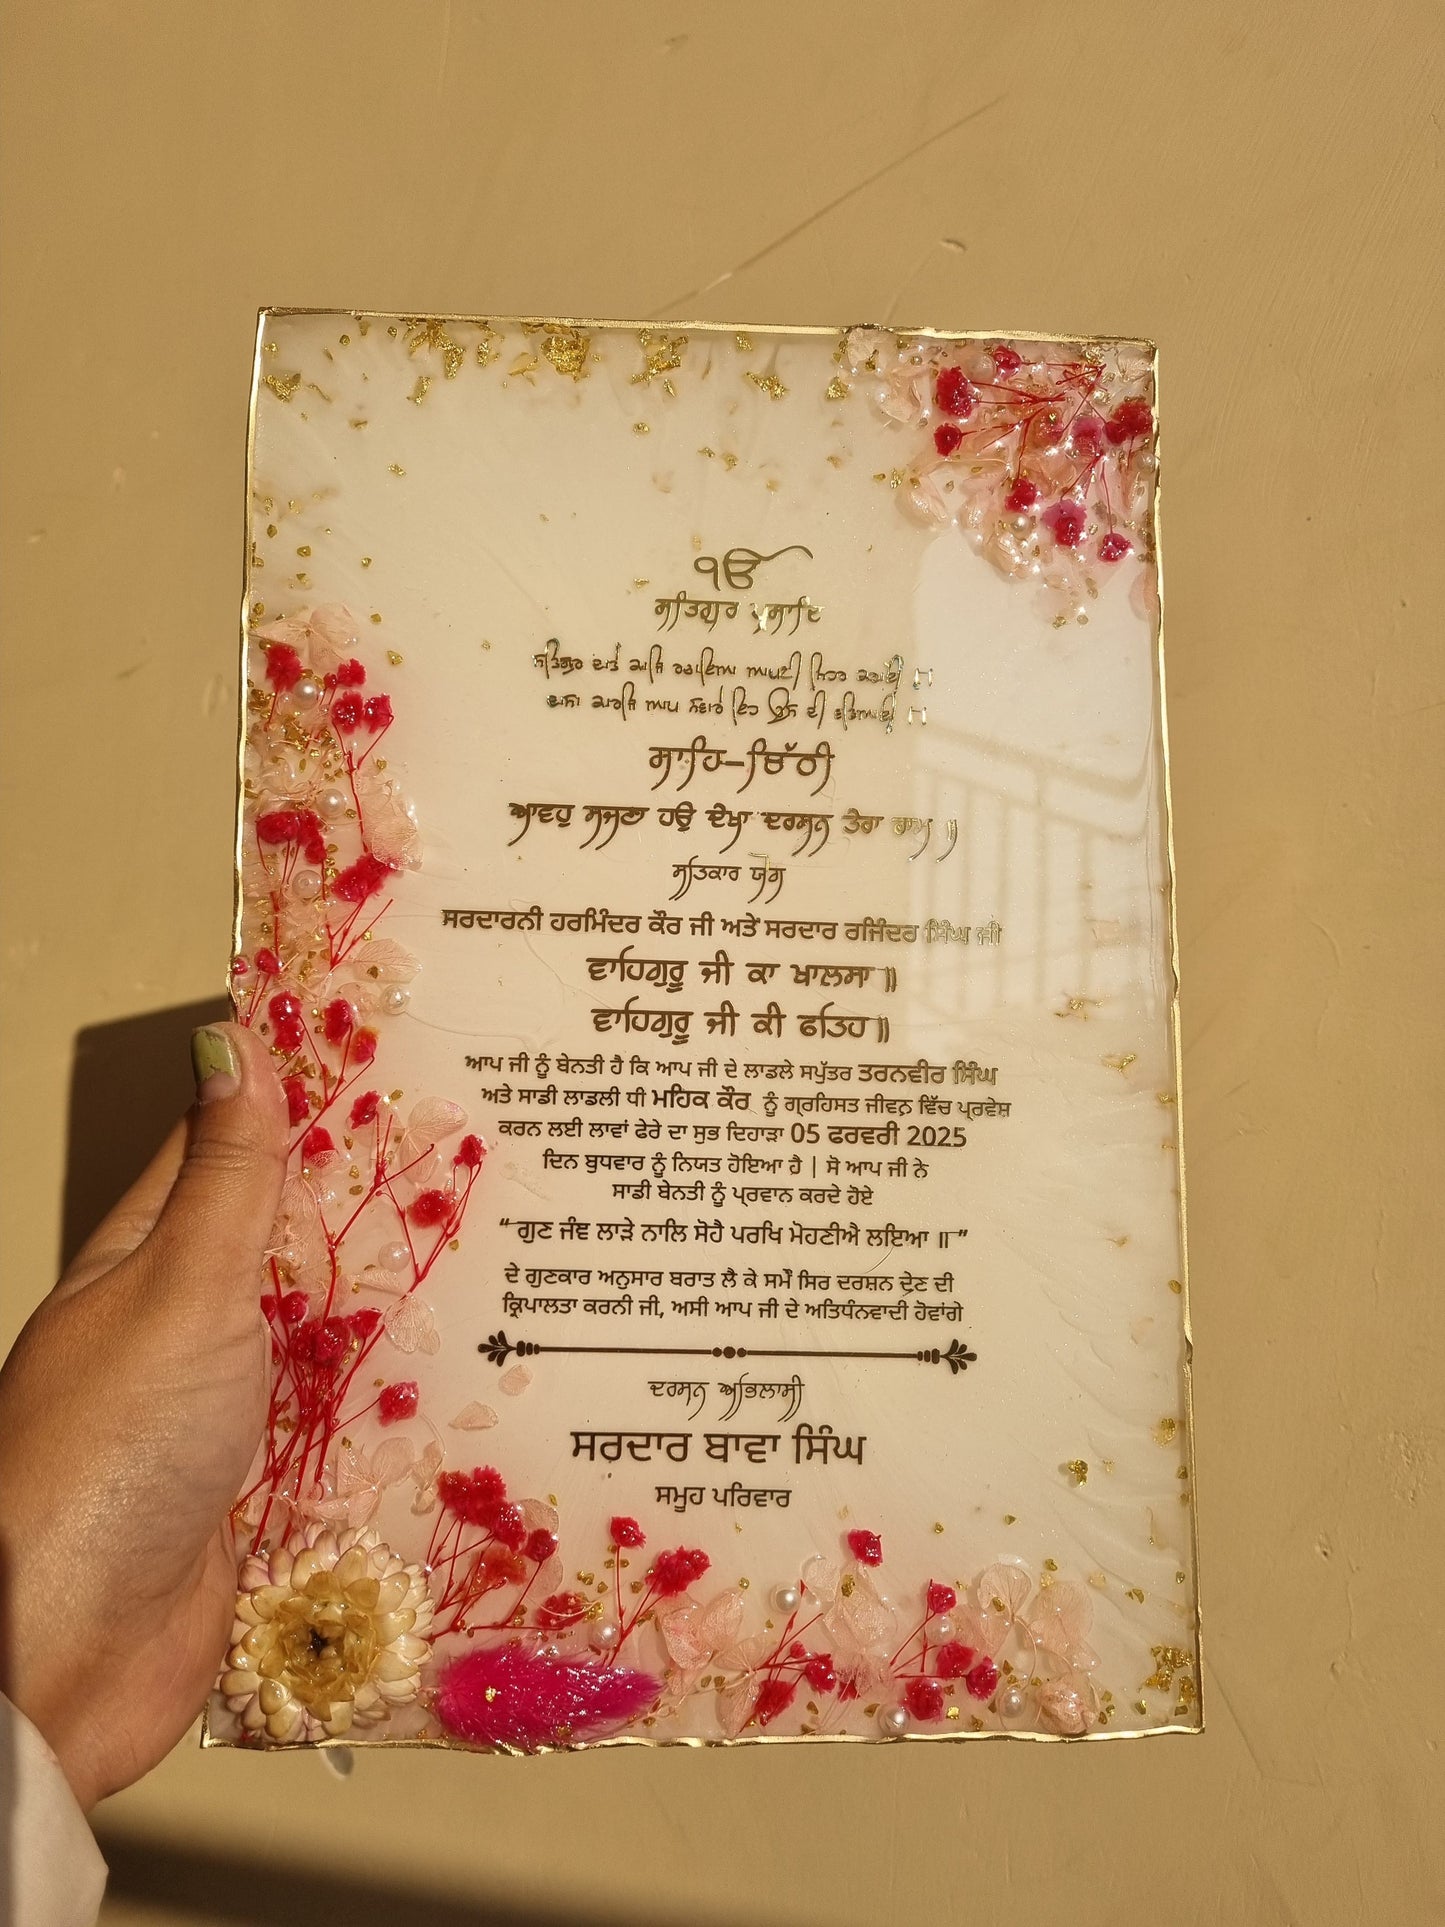 ੴ
ਸਤਿਗੁਰ ਪ੍ਰਸਾਦਿ
ਸਤਿਗੁਰ ਦਾਤੇ ਕਾਜਿ ਰਚਾਇਆ ਆਪਣੀ ਮਿਹਰ ਕਰਾਈ ॥
ਦਾਸਾ ਕਾਰਜਿ ਆਪ ਸੰਵਾਰੇ ਇਹ ਉਸ ਦੀ ਵਡਿਆਈ ॥
ਸਾਹਿ-ਚਿੱਠੀ
ਆਵਹੁ ਸਜਣਾ ਹਉ ਦੇਖਾ ਦਰਸਨ ਤੇਰਾ ਰਾਮ ॥
ਸਤਿਕਾਰ ਯੋਗ
ਸਰਦਾਰਨੀ ਹਰਮਿੰਦਰ ਕੌਰ ਜੀ ਅਤੇ ਸਰਦਾਰ ਰਜਿੰਦਰ ਸਿੰਘ ਜੀ
ਵਾਹਿਗੁਰੂ ਜੀ ਕਾ ਖਾਲਸਾ ॥
ਵਾਹਿਗੁਰੂ ਜੀ ਕੀ ਫਤਿਹ ॥
ਆਪ ਜੀ ਨੂੰ ਬੇਨਤੀ ਹੈ ਕਿ ਆਪ ਜੀ ਦੇ ਲਾਡਲੇ ਸਪੁੱਤਰ ਤਰਨਵੀਰ ਸਿੰਘ
ਅਤੇ ਸਾਡੀ ਲਾਡਲੀ ਧੀ ਮਹਿਕ ਕੌਰ ਨੂੰ ਗ੍ਰਹਿਸਤ ਜੀਵਨ ਵਿੱਚ ਪ੍ਰਵੇਸ਼
ਕਰਨ ਲਈ ਲਾਵਾਂ ਫੇਰੇ ਦਾ ਸੁਭ ਦਿਹਾੜਾ 05 ਫਰਵਰੀ 2025
ਦਿਨ ਬੁਧਵਾਰ ਨੂੰ ਨਿਯਤ ਹੋਇਆ ਹੈ | ਸੋ ਆਪ ਜੀ ਨੇ
ਸਾਡੀ ਬੇਨਤੀ ਨੂੰ ਪ੍ਰਵਾਨ ਕਰਦੇ ਹੋਏ
“ ਗੁਣ ਜੰਞ ਲਾੜੇ ਨਾਲਿ ਸੋਹੈ ਪਰਖਿ ਮੋਹਣੀਐ ਲਇਆ ॥ ”
ਦੇ ਗੁਣਕਾਰ ਅਨੁਸਾਰ ਬਰਾਤ ਲੈ ਕੇ ਸਮੇਂ ਸਿਰ ਦਰਸ਼ਨ ਦੇਣ ਦੀ
ਕ੍ਰਿਪਾਲਤਾ ਕਰਨੀ ਜੀ, ਅਸੀ ਆਪ ਜੀ ਦੇ ਅਤਿਧੰਨਵਾਦੀ ਹੋਵਾਂਗੇ
ਦਰਸ਼ਨ ਅਭਿਲਾਸੀ
ਸਰਦਾਰ ਬਾਵਾ ਸਿੰਘ
ਸਮੂਹ ਪਰਿਵਾਰ